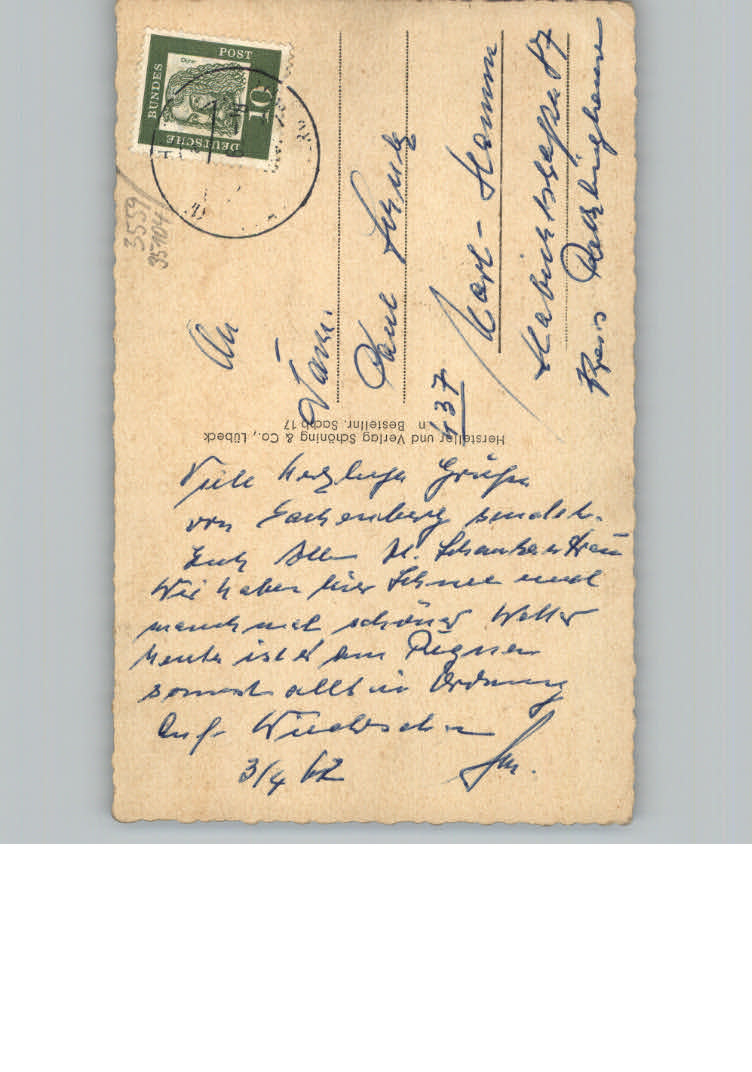 DEUTSCHE
BUNDES
POST
10
3559/
35104
An
Fam.
Paul
437
Marl-Hamm
Habichtstrasse 87
Kreis Recklinghausen
Hersteller und Verlag Schöning & Co., Lübeck
n Bestellnr. Sachb 17
Viele herzliche Grüße
von sendet
Euch Allen
Wir haben hier Schnee und
manchmal schönes Wetter
heute ist es am Regnen
sonst alles in Ordnung
Auf Wiedersehn
3/4 62